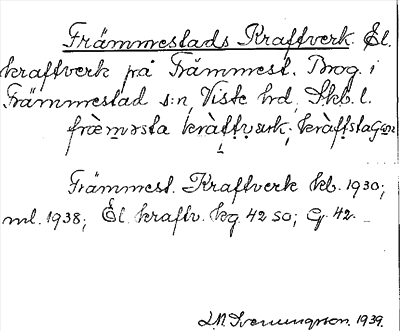 Främmestads Kraftverk. El.
kraftverk på Främmest. Prog. i
Främmestad s:n, Viste hd, Skb. l.
främ̥sta kràftv̥ærk; kràftstaGən
Främmest. Kraftverk kb. 1930;
ml. 1938; El. kraftv. kg 42 SO; G. 42.
1939.